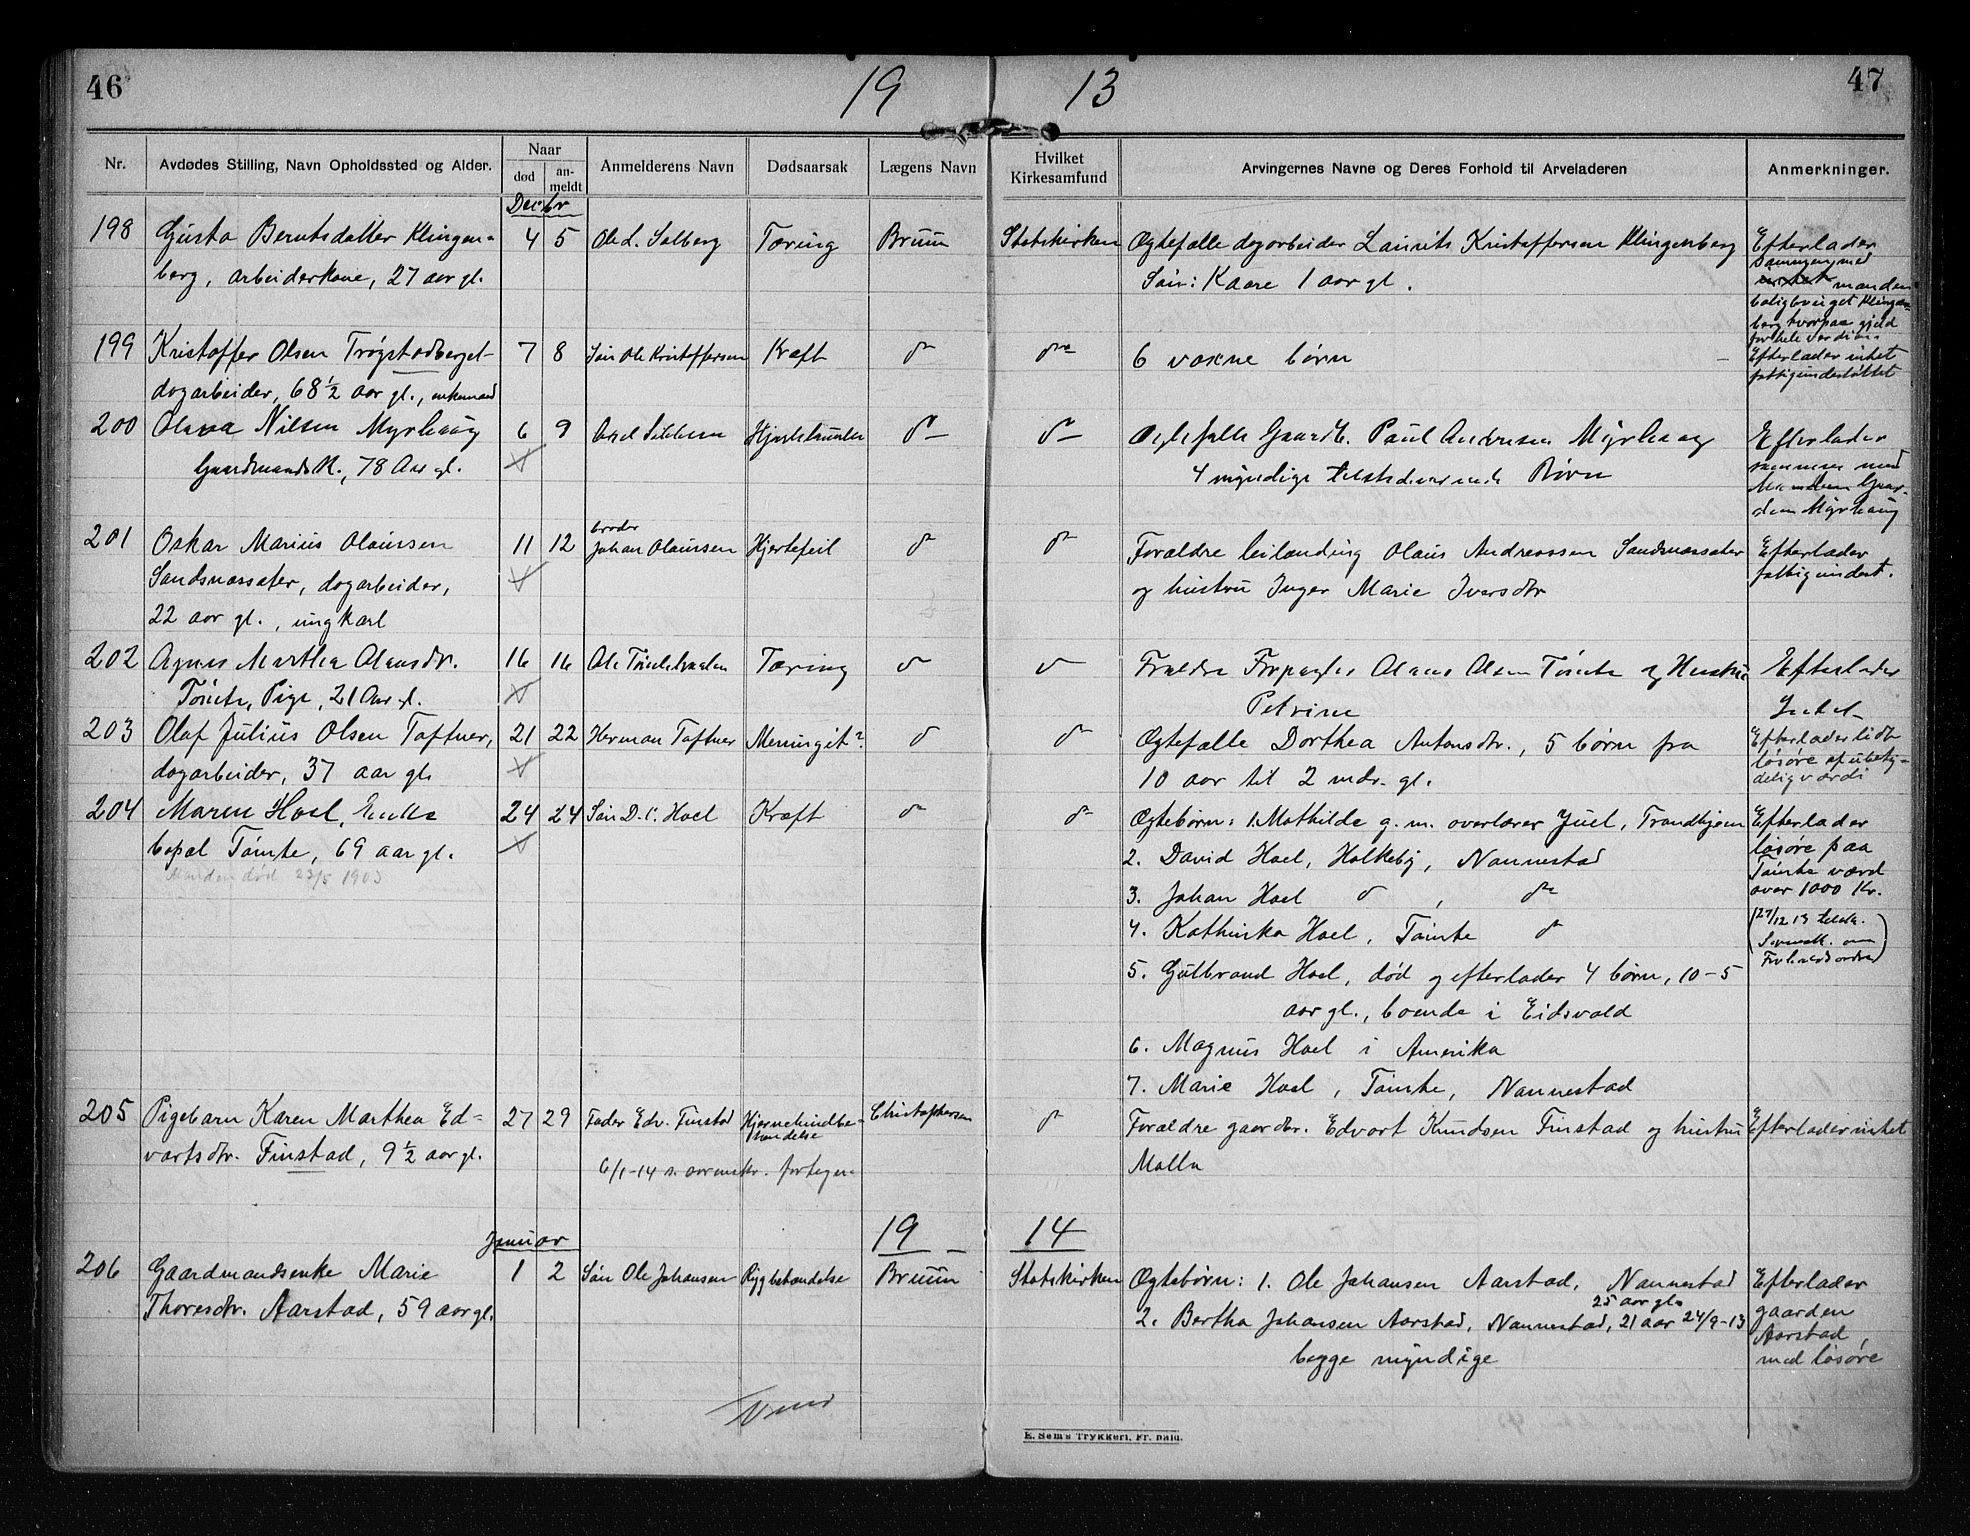 46
19 13
47
Nr.
Avdødes Stilling, Navn Opholdssted og Alder.
Naar
død
an-
meldt
Anmelderens Navn
Dødsaarsak
Lægens Navn
Hvilket
Kirkesamfund
Arvingernes Navne og Deres Forhold til Arveladeren
Anmerkninger.
Decbr
198 Gusta Berntsdatter Klingen- 4 5 Ole L. Solberg Tæring Bruun Statskirken Ægtefælle dagarbeider Laurits Kristoffersen Klingenberg Efterlader
berg, arbeiderkone, 27 aar gl. Søn: Kaare 1 aar gl.
sammen med
manden
boligbruget Klingen-
berg hvorpaa gjeld
for hele værdien.
199 Kristoffer Olsen Trøgstadberget 7 8 Søn Ole Kristoffersen Kræft do do 6 voxne børn Efterlader intet
dagarbeider, 68½ aar gl., enkemand fattigunderstøttet
200 Olava Nilsen Myrhaug 6 9 Hjerte do do Ægtefælle Gaardb. Paul Andersen Myrhaug Efterlader
Gaardmandsk., 78 Aar gl. 4 myndige tilstedeværende Børn
sammen med
Manden Gaar-
den Myrhaug
broder
201 Oskar Marius Olaussen 11 12 Johan Olaussen Hjertefeil do do Forældre leilænding Olaus Andreassen Sandsnæssæter Efterlader
Sandsnæssæter, dagarbeider, og hustru Inger Marie Iversdtr fattigunderst.
22 aar gl., ungkarl
202 Agnes Marthea Olausdr. 16 16 Ole Tæring do do Forældre Forpagter Olaus Olsen Tømte og Hustru Efterlader
Tømte, Pige, 21 Aar gl. Petrine Intet
203 Olaf Julius Olsen Taftner, 21 22 Herman Taftner Meningit? do do Ægtefælle Dorthea Antonsdtr., 5 børn fra Efterlader lidt
dagarbeider, 37 aar gl. 10 aar til 2 mdr. gl. løsøre af ubety-
delig værdi
204 Maren Hoel, Enke 24 24 Søn D. C. Hoel Kræft do do Ægtebørn: 1. Mathilde g. m. overlærer Juel, Trondhjem Efterlader
bopæl Tømte, 69 aar gl. 2. David Hoel, Holkeby, Nannestad løsøre paa
Manden død 23/5 1903
3. Johan Hoel do, do
Tømte værd
over 1000 Kr.
4. Kathinka Hoel, Tømte do
(27/12 13
5. Gulbrand Hoel, død og efterlader 4 børn, 10-5
aar gl., boende i Eidsvold
6. Magnus Hoel i Amerika
7. Marie Hoel, Tømte, Nannestad
205 Pigebarn Karen Marthea Ed- 27 29 Fader Edv. Finstad Hjernehindebe- Christophersen do Forældre gaardbr. Edvart Knudsen Finstad og hustru Efterlader intet
tændelse
vartsdtr. Finstad, 9½ aar gl. Malla
6/1-14 s. fortegn.
19 14
Januar
206 Gaardmandsenke Marie 1 2 Søn Ole Johansen Rygbetændelse Bruun Statskirken Ægtebørn: 1. Ole Johansen Aarstad, Nannestad Efterlader
25 aar gl.
Thoresdtr. Aarstad, 59 aar gl. 2. Bertha Johansen Aarstad, Nannestad, 21 aar 24/9-13 gaarden
begge myndige
Aarstad,
med løsøre
E. Sem's Trykkeri, Fr.hald.